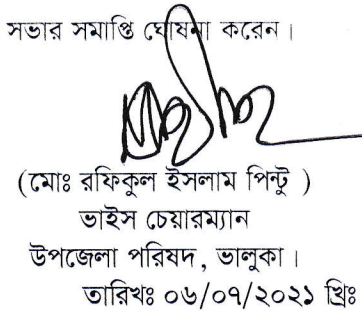 সভার সমাপ্তি ঘোষনা করেন।
(মোঃ রফিকুল ইসলাম পিন্টু )
ভাইস চেয়ারম্যান
উপজেলা পরিষদ, ভালুকা।
তারিখঃ ০৬/০৭/২০২১ খ্রিঃ